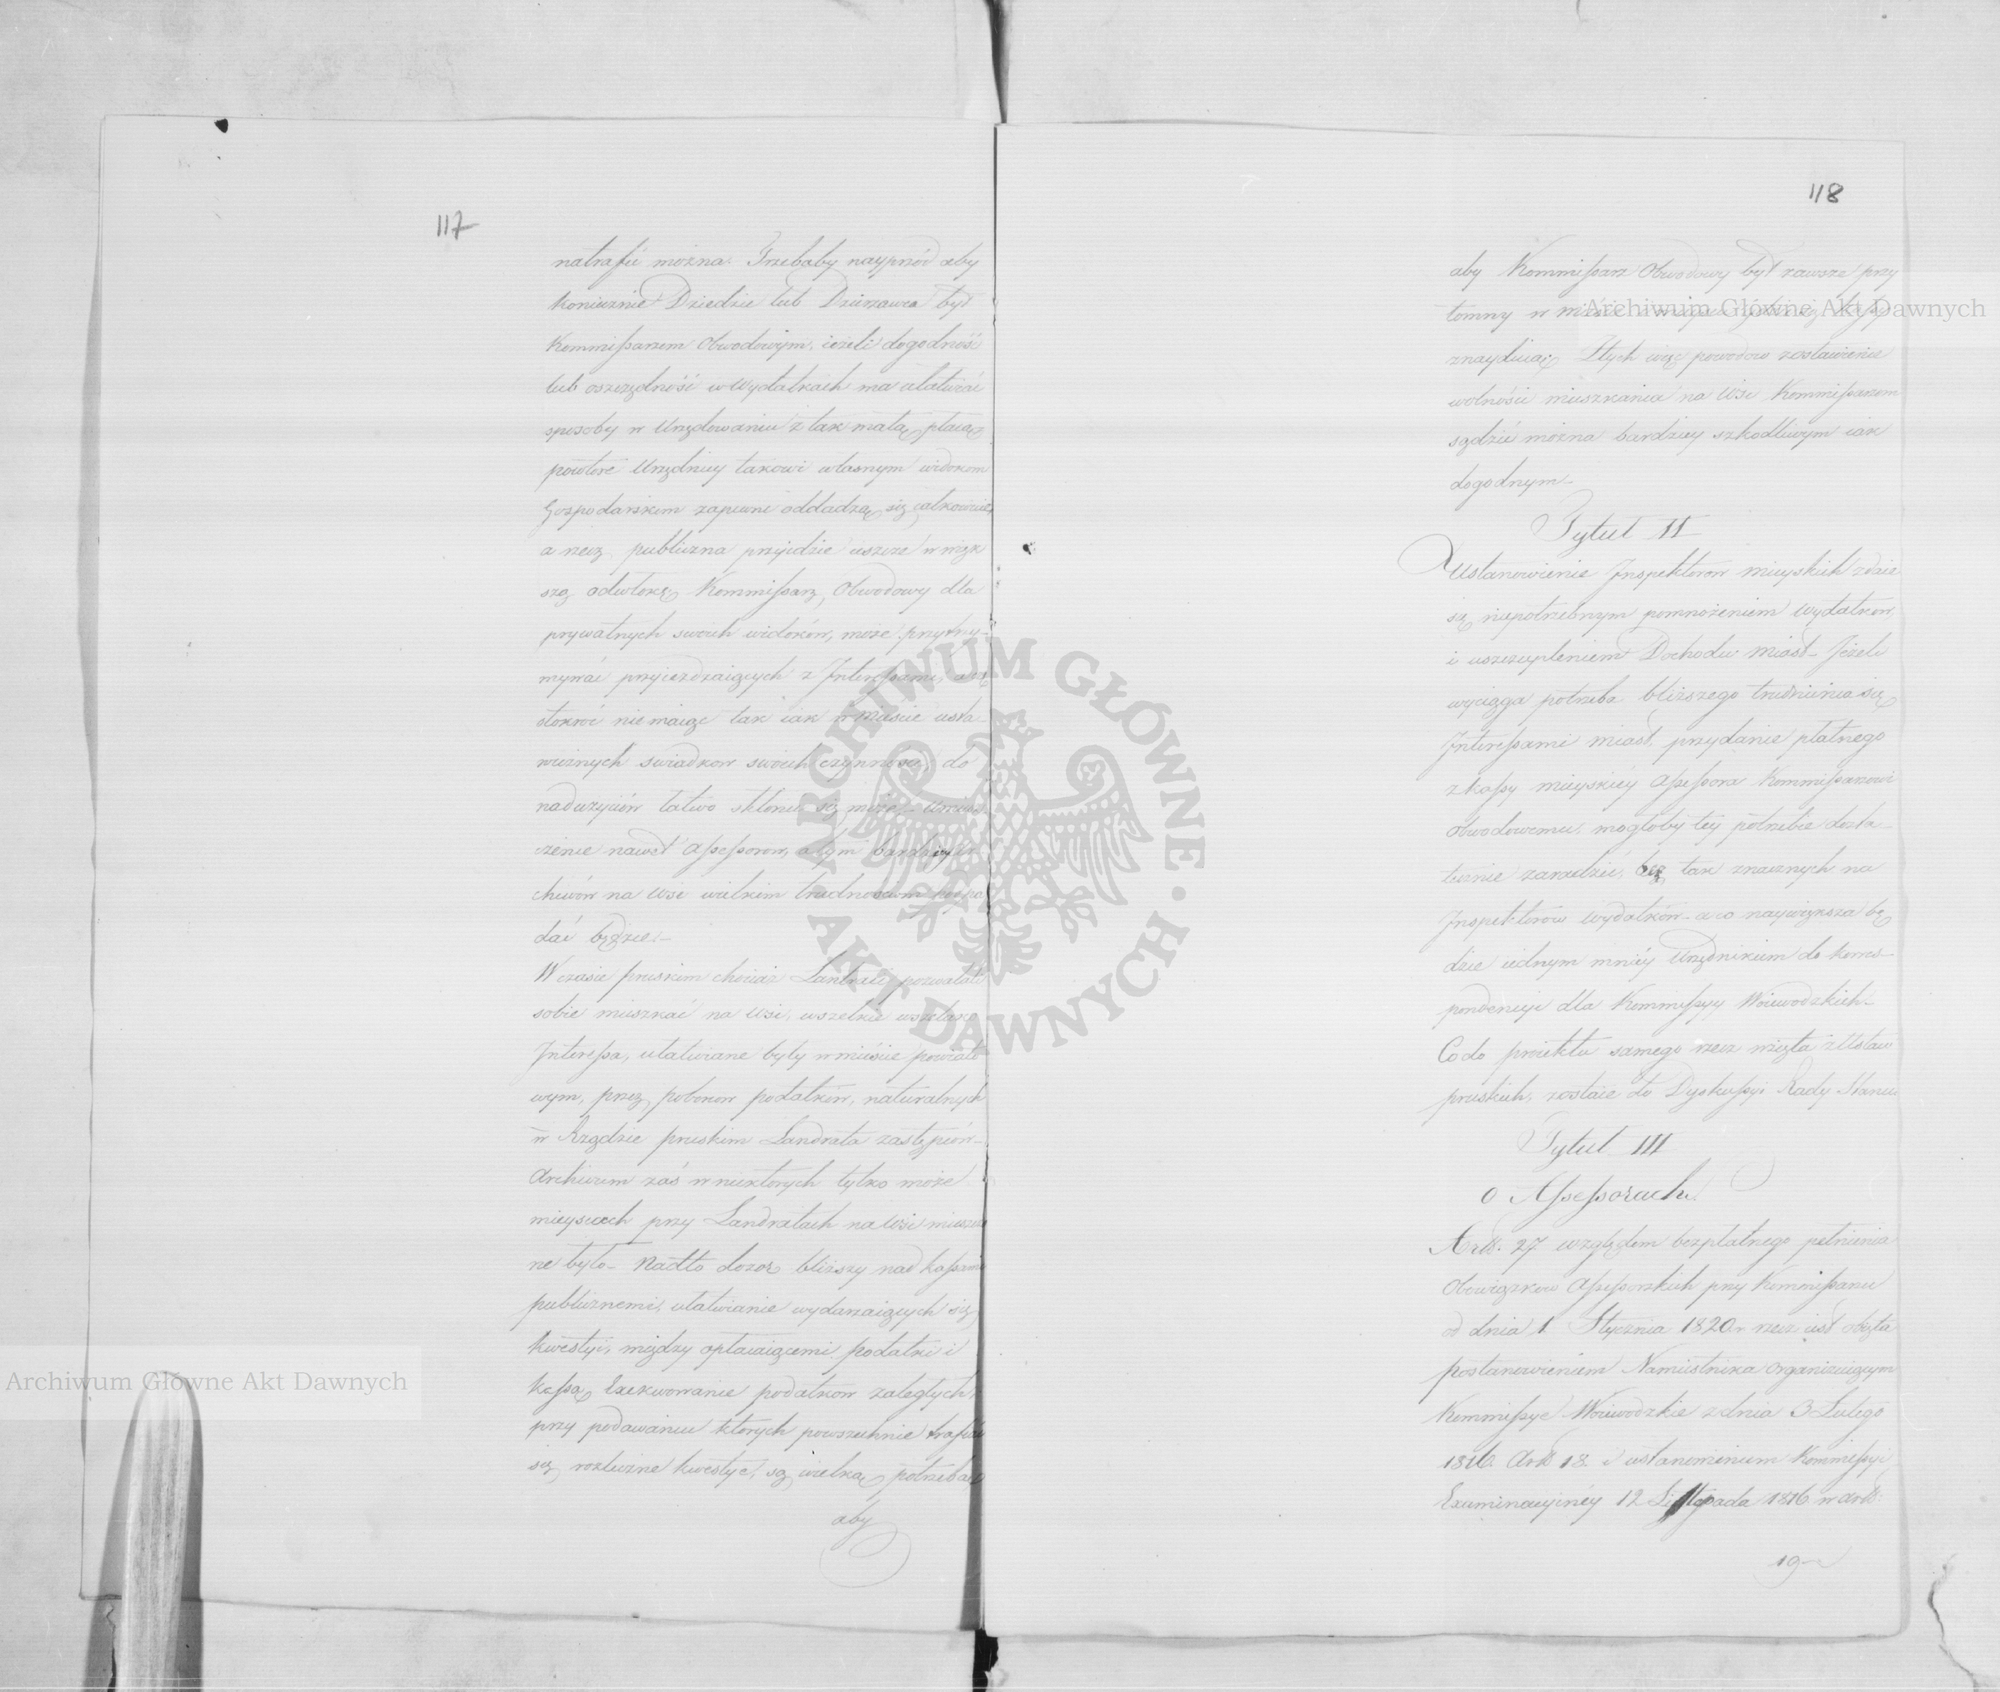 117
natrafić można. Trzebaby nayprzód aby
koniecznie Dziedzic lub Dzierzawca był
Kommissarzem Obwodowym, ieżeli dogodność
lub oszczędność w wydatkach ma ułatwiać
sposoby w Urzędowaniu z tak małą płacą
powtóre Urzędnicy takowi własnym widokom
Gospodarskim zapewne oddadzą się całkowicie,
a rzecz publiczna przyidzie ieszcze w więk
szą odwłokę, Kommissarz, Obwodowy dla
prywatnych swoich widoków, może przytrzy-
mywać przyieżdzaiących z Interessami, a
stokroć niemaiąc tak iak w mieście usta-
wicznych swiadkow swoich czynności, do
nadużyciów łatwo skłonić się może. Umiesz
czenie nawet Assessorow, a tym bardziey Ar
chiwów na wsi wielkim trudnościom podpa
dać będzie.-
W czasie pruskim chociaż Landraci pozwalali
sobie mieszkać na wsi, wszelkie wszelako
Interessa, ułatwiane były w mieście powiato
wym, przez poborow podatków, naturalnych
w Rządzie pruskim Landrata zastępców-
Archiwum zaś w niektorych tylko może
mieyscach przy Landratach na wsi mieszczo
ne było- Nadto dozor bliższy nad kassami
publicznemi, ułatwianie wydarzaiących się
kwestyi, między opłacaiącemi podatki i
kassą, Exekwowanie podatkow zaległych,
przy podawaniu ktorych powszechnie trafiaią
się rozliczne kwestye, są wielką potrzebą
aby
118
aby Kommissarz Obwodowy był zawsze przy
tomny w mieście i mieyscu gdzie się kassy
znayduią. Z tych więc powodow zostawienie
wolności mieszkania na wsi Kommissarzom
sądzić można bardziey szkodliwym iak
dogodnym-
Tytuł II
Ustanowienie Inspektorow mieyskich zdaie
się niepotrzebnym pomnożeniem wydatkow,
i uszczupleniem Dochodu miast- Jeżeli
wyciąga potrzeba bliższego trudnienia się
Interessami miast, przydanie płatnego
z kassy mieyskiéy Assessora Kommissarzowi
obwodowemu, mogłoby téy potrzebie dosta-
tecznie zaradzić, bez tak znacznych na
Inspektorów wydatków- a co naywiększa bę
dzie iednym mniéy Urzędnikiem do korres-
pondencyi dla Kommissyy Woiewodzkich-
Co do proiektu samego rzecz wzięta z Ustaw
pruskich, zostaie do Dyskussyi Rady Stanu.
Tytuł III
O Assessorach.
Artt. 27 względem bezpłatnego pełnienia
Obowiązkow Assessorskich przy Kommissarzu
od dnia 1 Stycznia 1820 r rzecz iest obięta
postanowieniem Namiestnika organizuiącym
Kommissye Woiewodzkie z dnia 3 Lutego
1816. Artt 18. i ustanowieniem Kommissyi
Examinacyinéy 12 Listopada 1816 w artt.
19-
Archiwum Główne Akt Dawnych
Archiwum Główne Akt Dawnych
ARCHIWUM GŁÓWNE
· AKT DAWNYCH ·